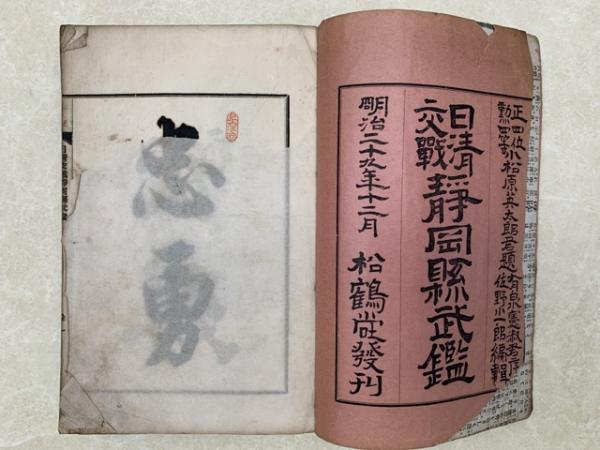 正四位
勲四等小松原英太郎君題 有泉憲淑君序
佐野小一郎編輯
日清
交戰靜岡縣武鑑
明治二十九年十二月 松鶴堂發刊
忠勇